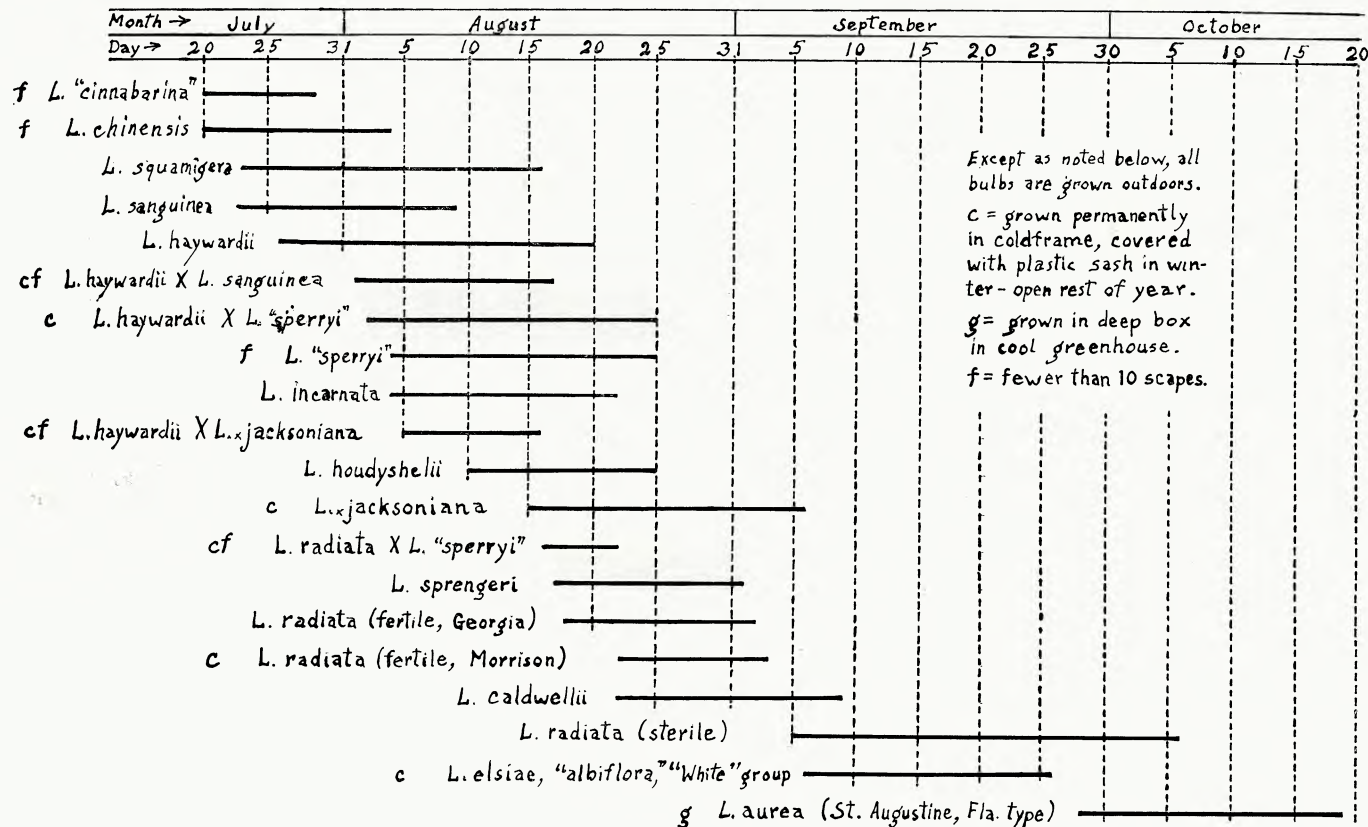 Month → July August September October
Day → 20 25 31 5 10 15 20 25 31 5 10 15 20 25 30 5 10 15 20
f L. "cinnabarina"
f L. chinensis
L. squamigera
L. sanguinea
L. haywardii
cf L. haywardii X L. sanguinea
c L. haywardii X L. "sperryi"
f L. "sperryi"
L. incarnata
cf L. haywardii X L. x jacksoniana
L. houdyshelii
c L. x jacksoniana
cf L. radiata X L. "sperryi"
L. sprengeri
L. radiata (fertile, Georgia)
c L. radiata (fertile, Morrison)
L. caldwellii
L. radiata (sterile)
c L. elsiae, "albiflora," "White" group
g L. aurea (St. Augustine, Fla. type)
Except as noted below, all
bulbs are grown outdoors.
c = grown permanently
in coldframe, covered
with plastic sash in win-
ter - open rest of year.
g = grown in deep box
in cool greenhouse.
f = fewer than 10 scapes.